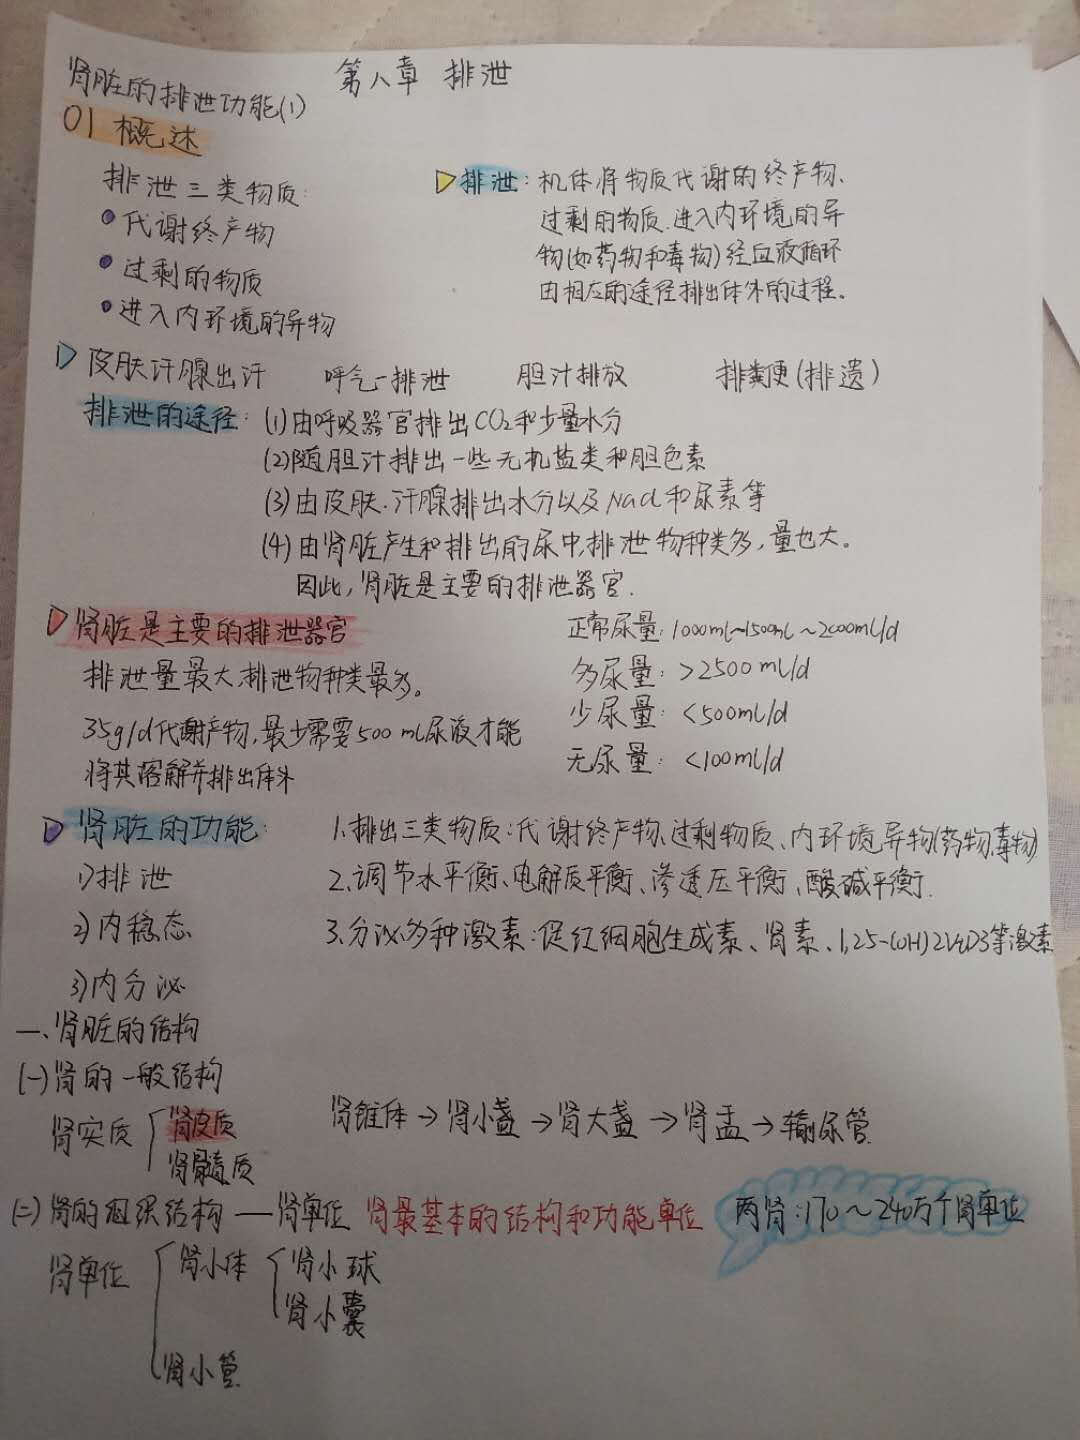 第八章 排泄
肾脏的排泄功能(1)
01 概述
排泄三类物质:
代谢终产物
过剩的物质
进入内环境的异物
排泄:机体将物质代谢的终产物、
过剩的物质、进入内环境的异
物(如药物和毒物)经血液循环
由相应的途径排出体外的过程。
皮肤汗腺出汗 呼气-排泄 胆汁排放 排粪便(排遗)
排泄的途径:(1)由呼吸器官排出CO2和少量水分
(2)随胆汁排出一些无机盐类和胆色素
(3)由皮肤、汗腺排出水分以及NaCl和尿素等
(4)由肾脏产生和排出的尿中,排泄物种类多,量也大。
因此,肾脏是主要的排泄器官.
肾脏是主要的排泄器官
排泄量最大,排泄物种类最多。
35g/d代谢产物,最少需要500ml尿液才能
将其溶解并排出体外
正常尿量:1000ml~1500ml~2000ml/d
多尿量:>2500ml/d
少尿量:<500ml/d
无尿量:<100ml/d
肾脏的功能:
1)排泄
2)内稳态
3)内分泌
1.排出三类物质:代谢终产物、过剩物质、内环境异物(药物,毒物)
2.调节水平衡、电解质平衡、渗透压平衡、酸碱平衡.
3.分泌多种激素:促红细胞生成素、肾素、1,25-(OH)2VitD3等激素
一、肾脏的结构
(一)肾的一般结构
肾实质 肾皮质
肾髓质
肾锥体→肾小盏→肾大盏→肾盂→输尿管.
(二)肾的组织结构——肾单位 肾最基本的结构和功能单位 两肾:170~240万个肾单位
肾单位 肾小体 肾小球
肾小囊
肾小管